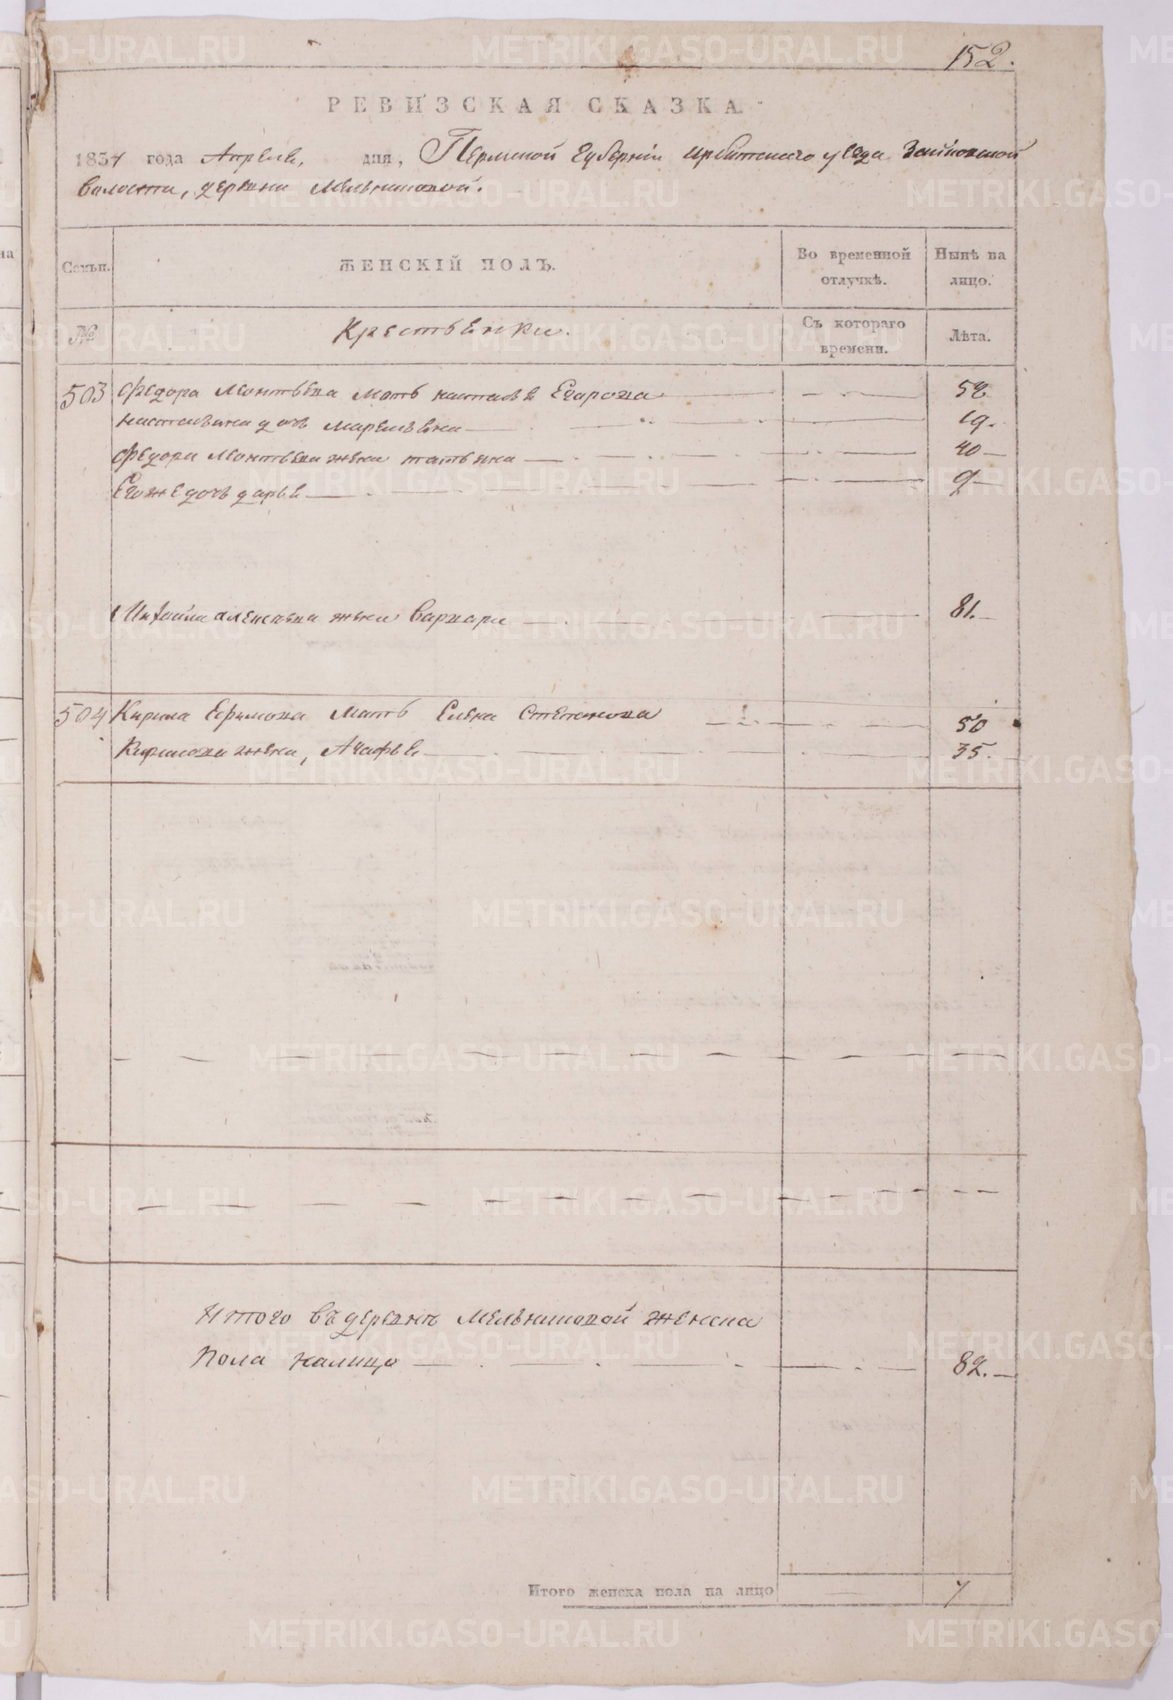 152.
РЕВИЗСКАЯ СКАЗКА.
1834 года Апреля, дня, Пермской губернии Ирбитского уезда Зайковской
волости, деревни Мельниковой.
Семьи. ЖЕНСКІЙ ПОЛЪ. Во временной отлучкѣ. Нынѣ на лицо.
№ Крестьянки. Съ котораго времени. Лѣта.
503 Федора Леонтьева мать Егорова 52
дочь 19.
Федора Леонтьева жена татьяна 40
Егоже дочь дарья 9
Михайла алексеева жена Варвара 81.
504 Кирила Ефимова мать Елена Степанова 50
Кирилова жена, Агафья 35.
Итого въ деревнѣ Мельниковой женска
пола налицо 82.
Итого женска пола на лицо 7
METRIKI.GASO-URAL.RU